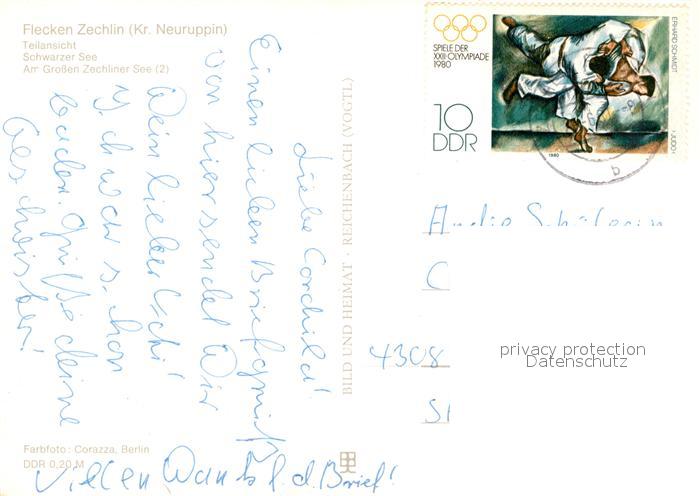 Flecken Zechlin (Kr. Neuruppin)
Teilansicht
Schwarzer See
Am Großen Zechliner See (2)
Liebe Corchild!
Einen lieben Briefgruß
von hier sendet Dir
Dein lieber Uschi!
Ich war schon
baden. Grüße deine
Geschwister!
Vielen Dank f. d. Brief!
Farbfoto: Corazza, Berlin
DDR 0,20 M
BILD UND HEIMAT · REICHENBACH (VOGTL)
SPIELE DER
XXII. OLYMPIADE
1980
10
DDR
ERHARD SCHMIDT
›JUDO‹
1980
b
C
4308
privacy protection
Datenschutz